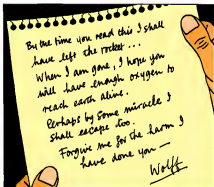 By the time you read this I shall
have left the rocket...
When I am gone, I hope you
will have enough oxygen to
reach earth alive.
Perhaps by some miracle I
shall escape too.
Forgive me for the harm I
have done you —
Wolff